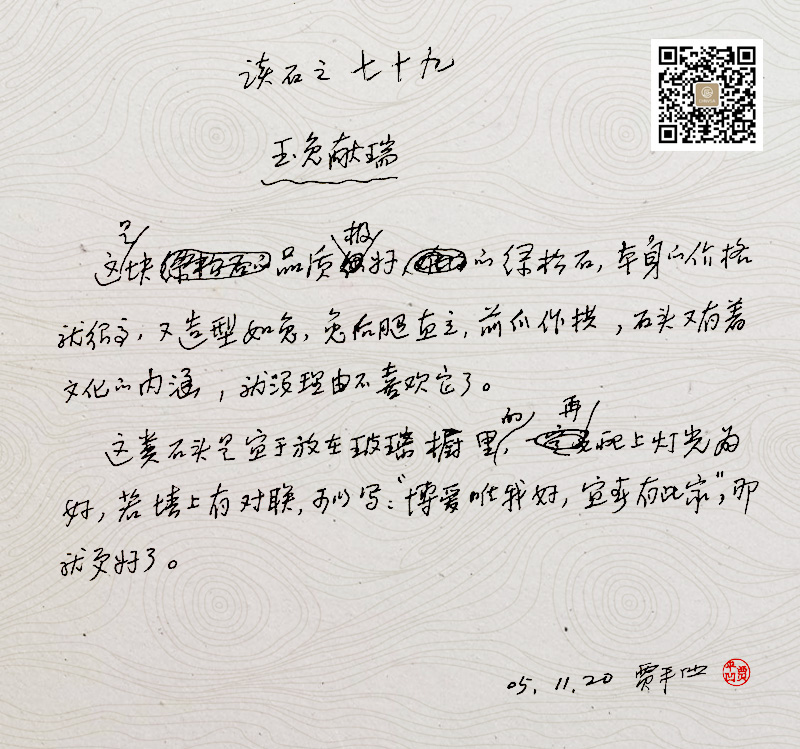 读石之七十九
玉兔献瑞
这是块品质极好的绿松石,本身的价格
就很高,又造型如兔,兔后腿直立,前爪作拱,石头又有着
文化的内涵,就没理由不喜欢它了。
这类石头是宜于放在玻璃橱里的,再配上灯光为
好,若墙上有对联,可以写:“博爱唯我好,宜春有此家”,那
就更好了。
05.11.20 贾平凹
贾平凹